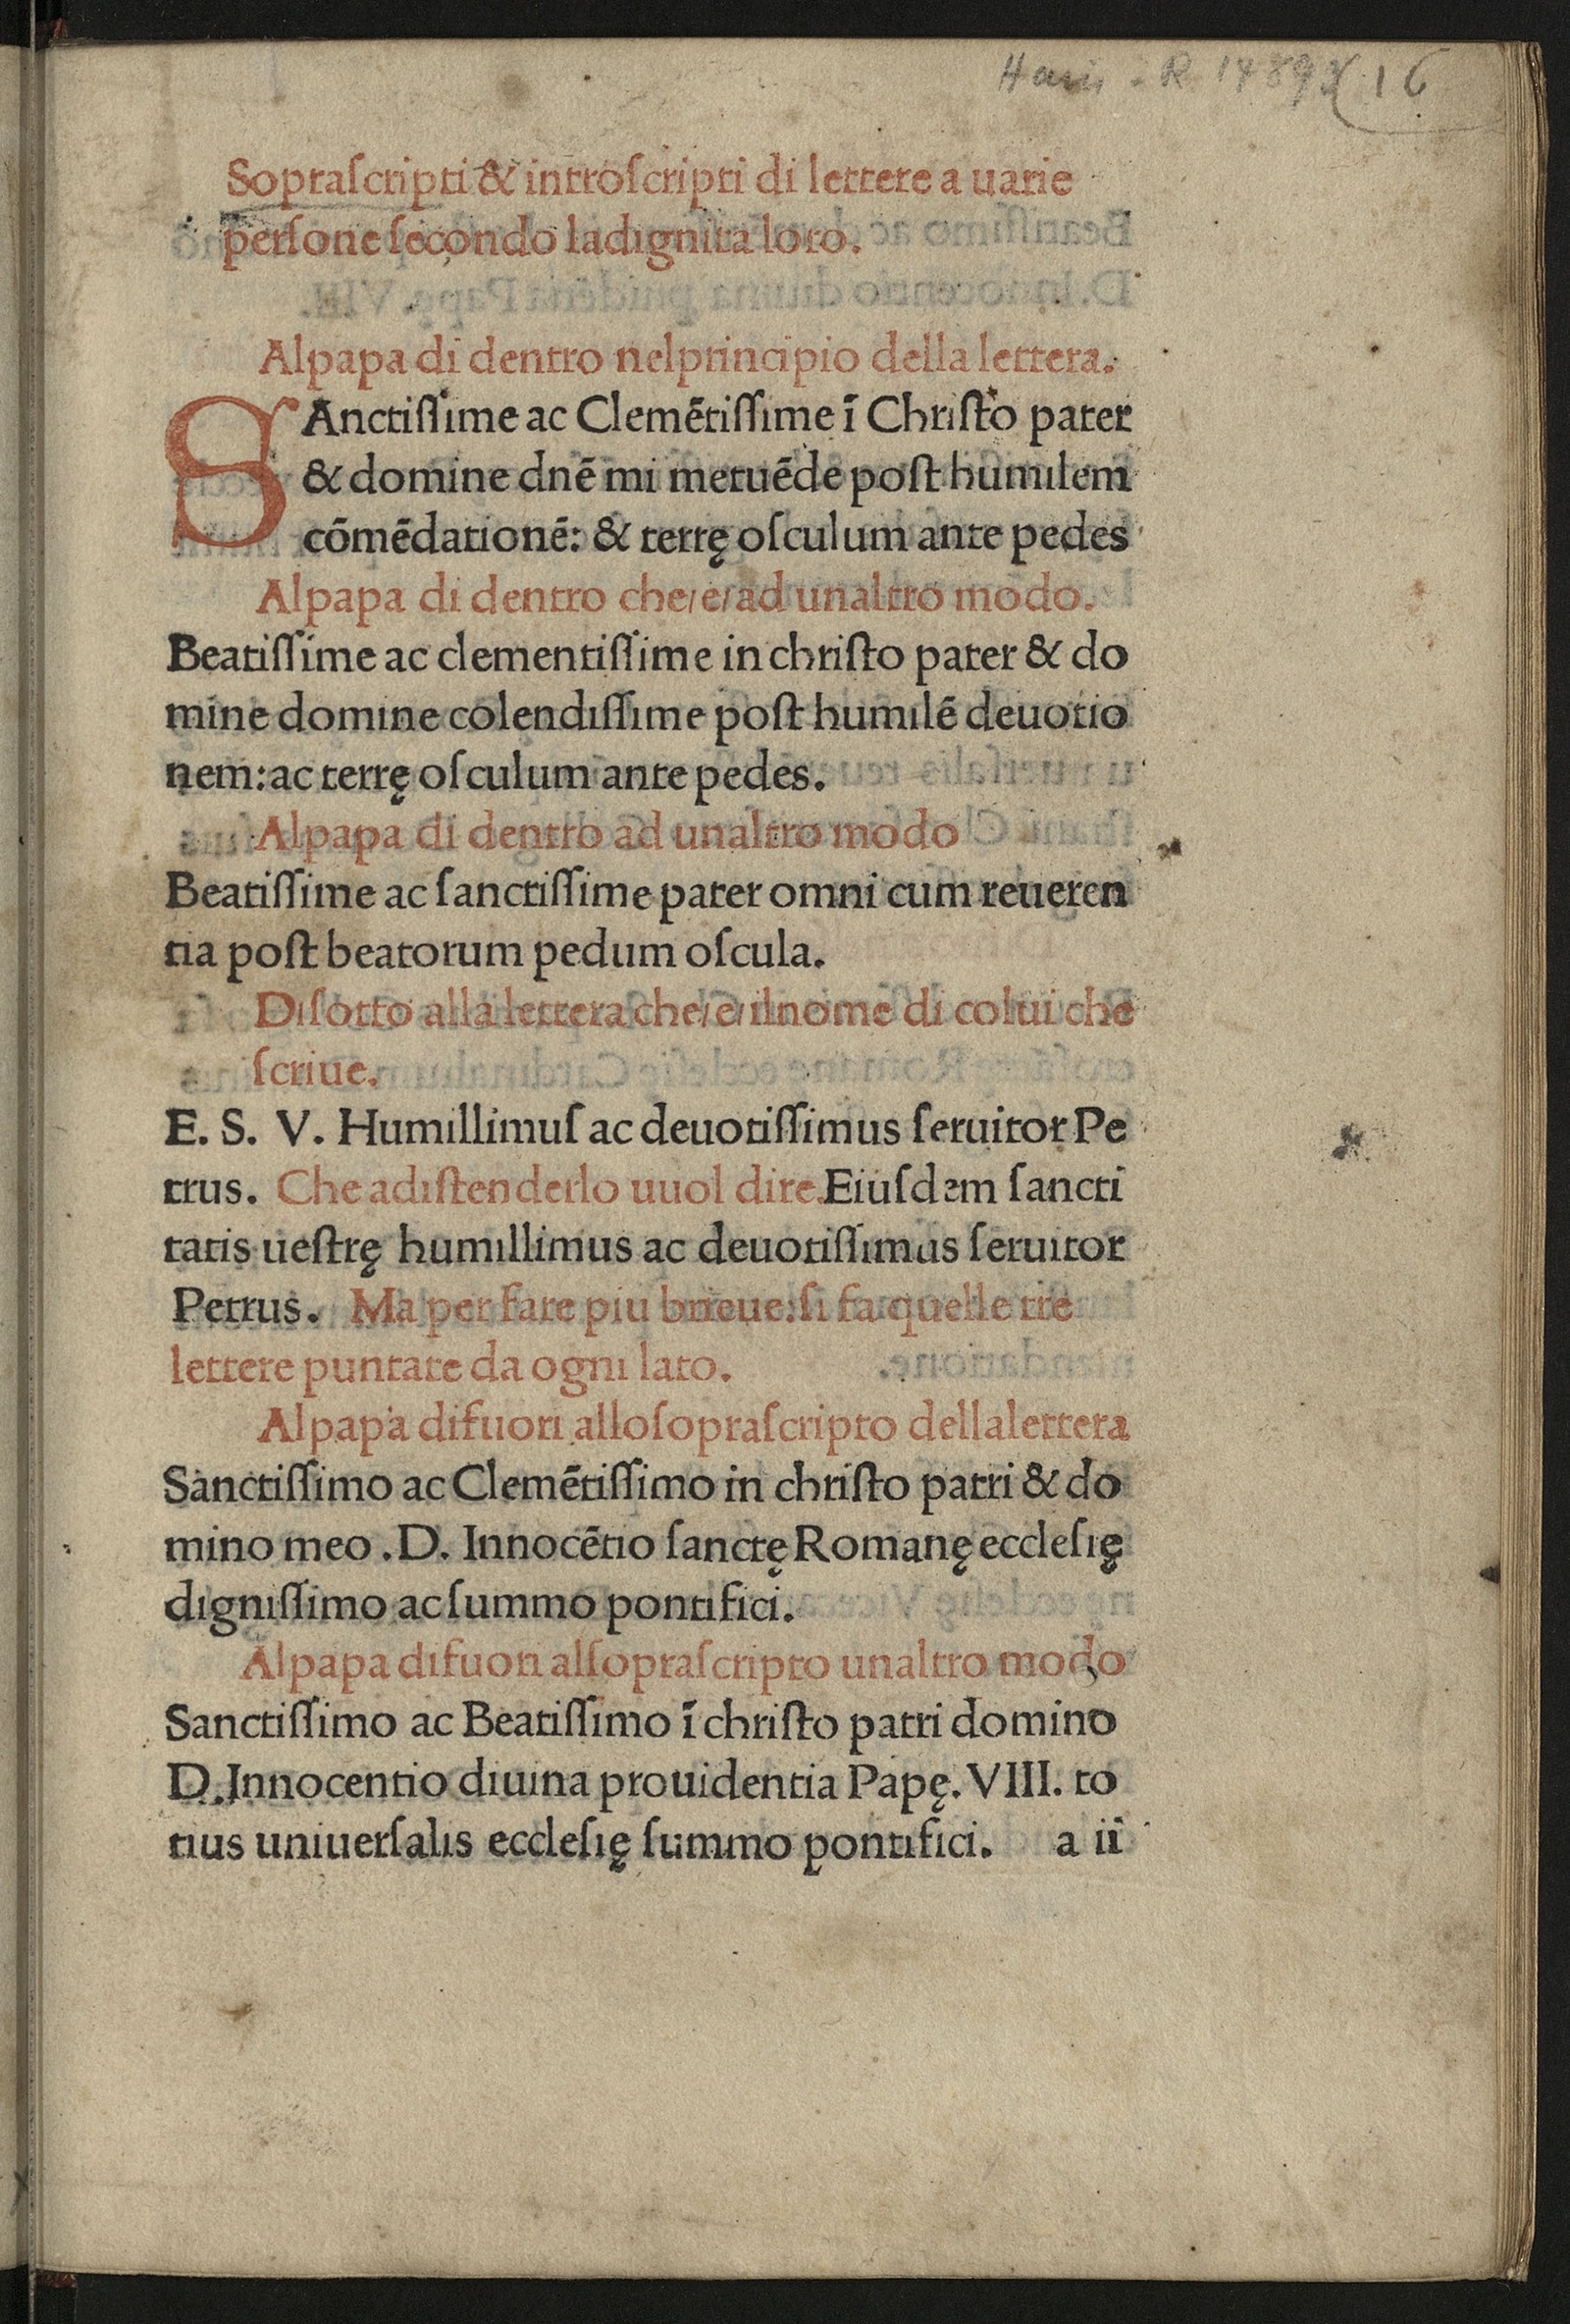 16
Sopraſcripti & introſcripti di lettere a uarie
perſone ſecondo ladignita loro.
Alpapa di dentro nelprincipio della lettera.
SAnctiſſime ac Clemētiſſime ī Chriſto pater
& domine dnē mi metuēde poſt humilem
cōmēdationē: & terrę oſculum ante pedes
Alpapa di dentro che/e/ad unaltro modo.
Beatiſſime ac clementiſſime in chriſto pater & do
mine domine colendiſſime poſt humilē deuotio
nem: ac terrę oſculum ante pedes.
Alpapa di dentro ad unaltro modo
Beatiſſime ac ſanctiſſime pater omni cum reueren
tia poſt beatorum pedum oſcula.
Diſotto alla lettera che/e/ilnome di colui che
ſcriue.
E. S. V. Humillimuſ ac deuotiſſimus ſeruitor Pe
trus. Che adiſtenderlo uuol dire. Eiuſdem ſancti
tatis ueſtrę humillimus ac deuotiſſimus ſeruitor
Petrus. Ma per fare piu brieue: ſi fa quelle tre
lettere puntate da ogni lato.
Alpapa difuori alloſopraſcripto dellalettera
Sanctiſſimo ac Clemētiſſimo in chriſto patri & do
mino meo .D. Innocētio ſanctę Romanę eccleſię
digniſſimo ac ſummo pontifici.
Alpapa difuori alſopraſcripto unaltro modo
Sanctiſſimo ac Beatiſſimo ī chriſto patri domino
D. Innocentio diuina prouidentia Papę. VIII. to
tius uniuerſalis eccleſię ſummo pontifici. a ii